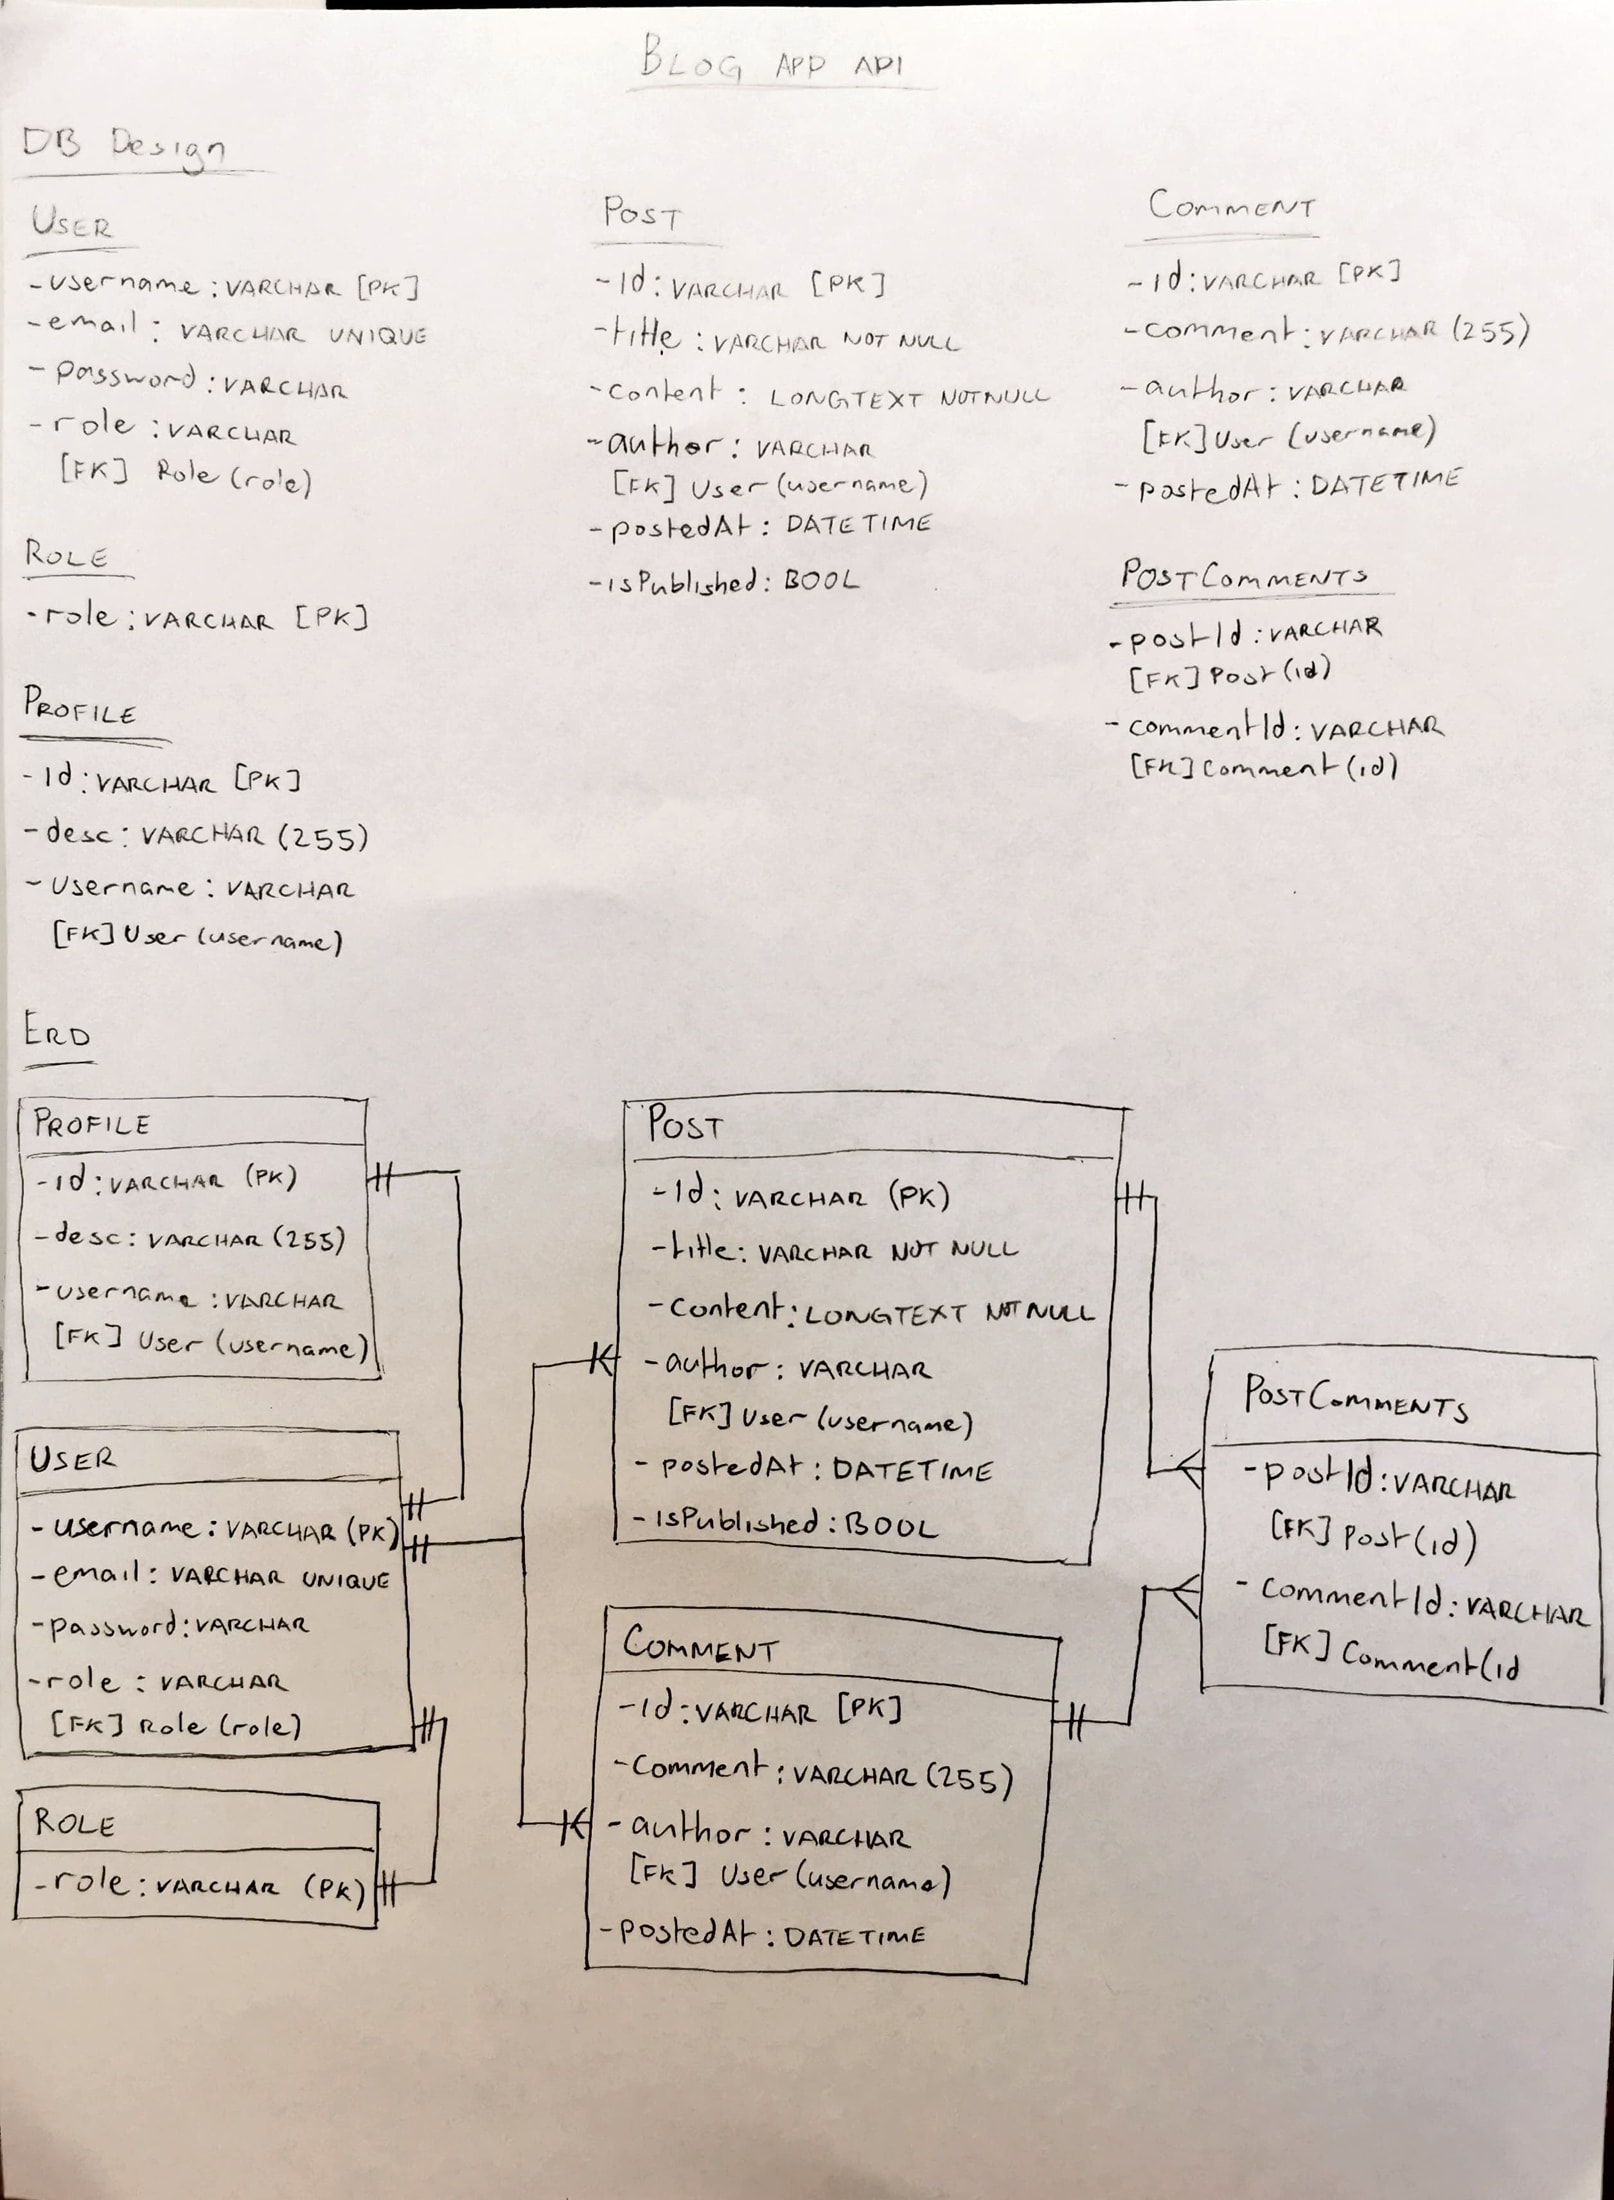 BLOG APP API
DB Design
USER
- username : VARCHAR [PK]
- email : VARCHAR UNIQUE
- password : VARCHAR
- role : VARCHAR
[FK] Role (role)
ROLE
- role : VARCHAR [PK]
PROFILE
- id : VARCHAR [PK]
- desc : VARCHAR (255)
- username : VARCHAR
[FK] User (username)
POST
- id : VARCHAR [PK]
- title : VARCHAR NOT NULL
- content : LONGTEXT NOT NULL
- author : VARCHAR
[FK] User (username)
- postedAt : DATETIME
- isPublished : BOOL
COMMENT
- id : VARCHAR [PK]
- comment : VARCHAR (255)
- author : VARCHAR
[FK] User (username)
- postedAt : DATETIME
POSTCOMMENTS
- postId : VARCHAR
[FK] Post (id)
- commentId : VARCHAR
[FK] Comment (id)
ERD
PROFILE
- id : VARCHAR (PK)
- desc : VARCHAR (255)
- username : VARCHAR
[FK] User (username)
USER
- username : VARCHAR (PK)
- email : VARCHAR UNIQUE
- password : VARCHAR
- role : VARCHAR
[FK] Role (role)
ROLE
- role : VARCHAR (PK)
POST
- id : VARCHAR (PK)
- title : VARCHAR NOT NULL
- content : LONGTEXT NOT NULL
- author : VARCHAR
[FK] User (username)
- postedAt : DATETIME
- isPublished : BOOL
COMMENT
- id : VARCHAR [PK]
- comment : VARCHAR (255)
- author : VARCHAR
[FK] User (username)
- postedAt : DATETIME
POSTCOMMENTS
- postId : VARCHAR
[FK] Post (id)
- commentId : VARCHAR
[FK] Comment (id